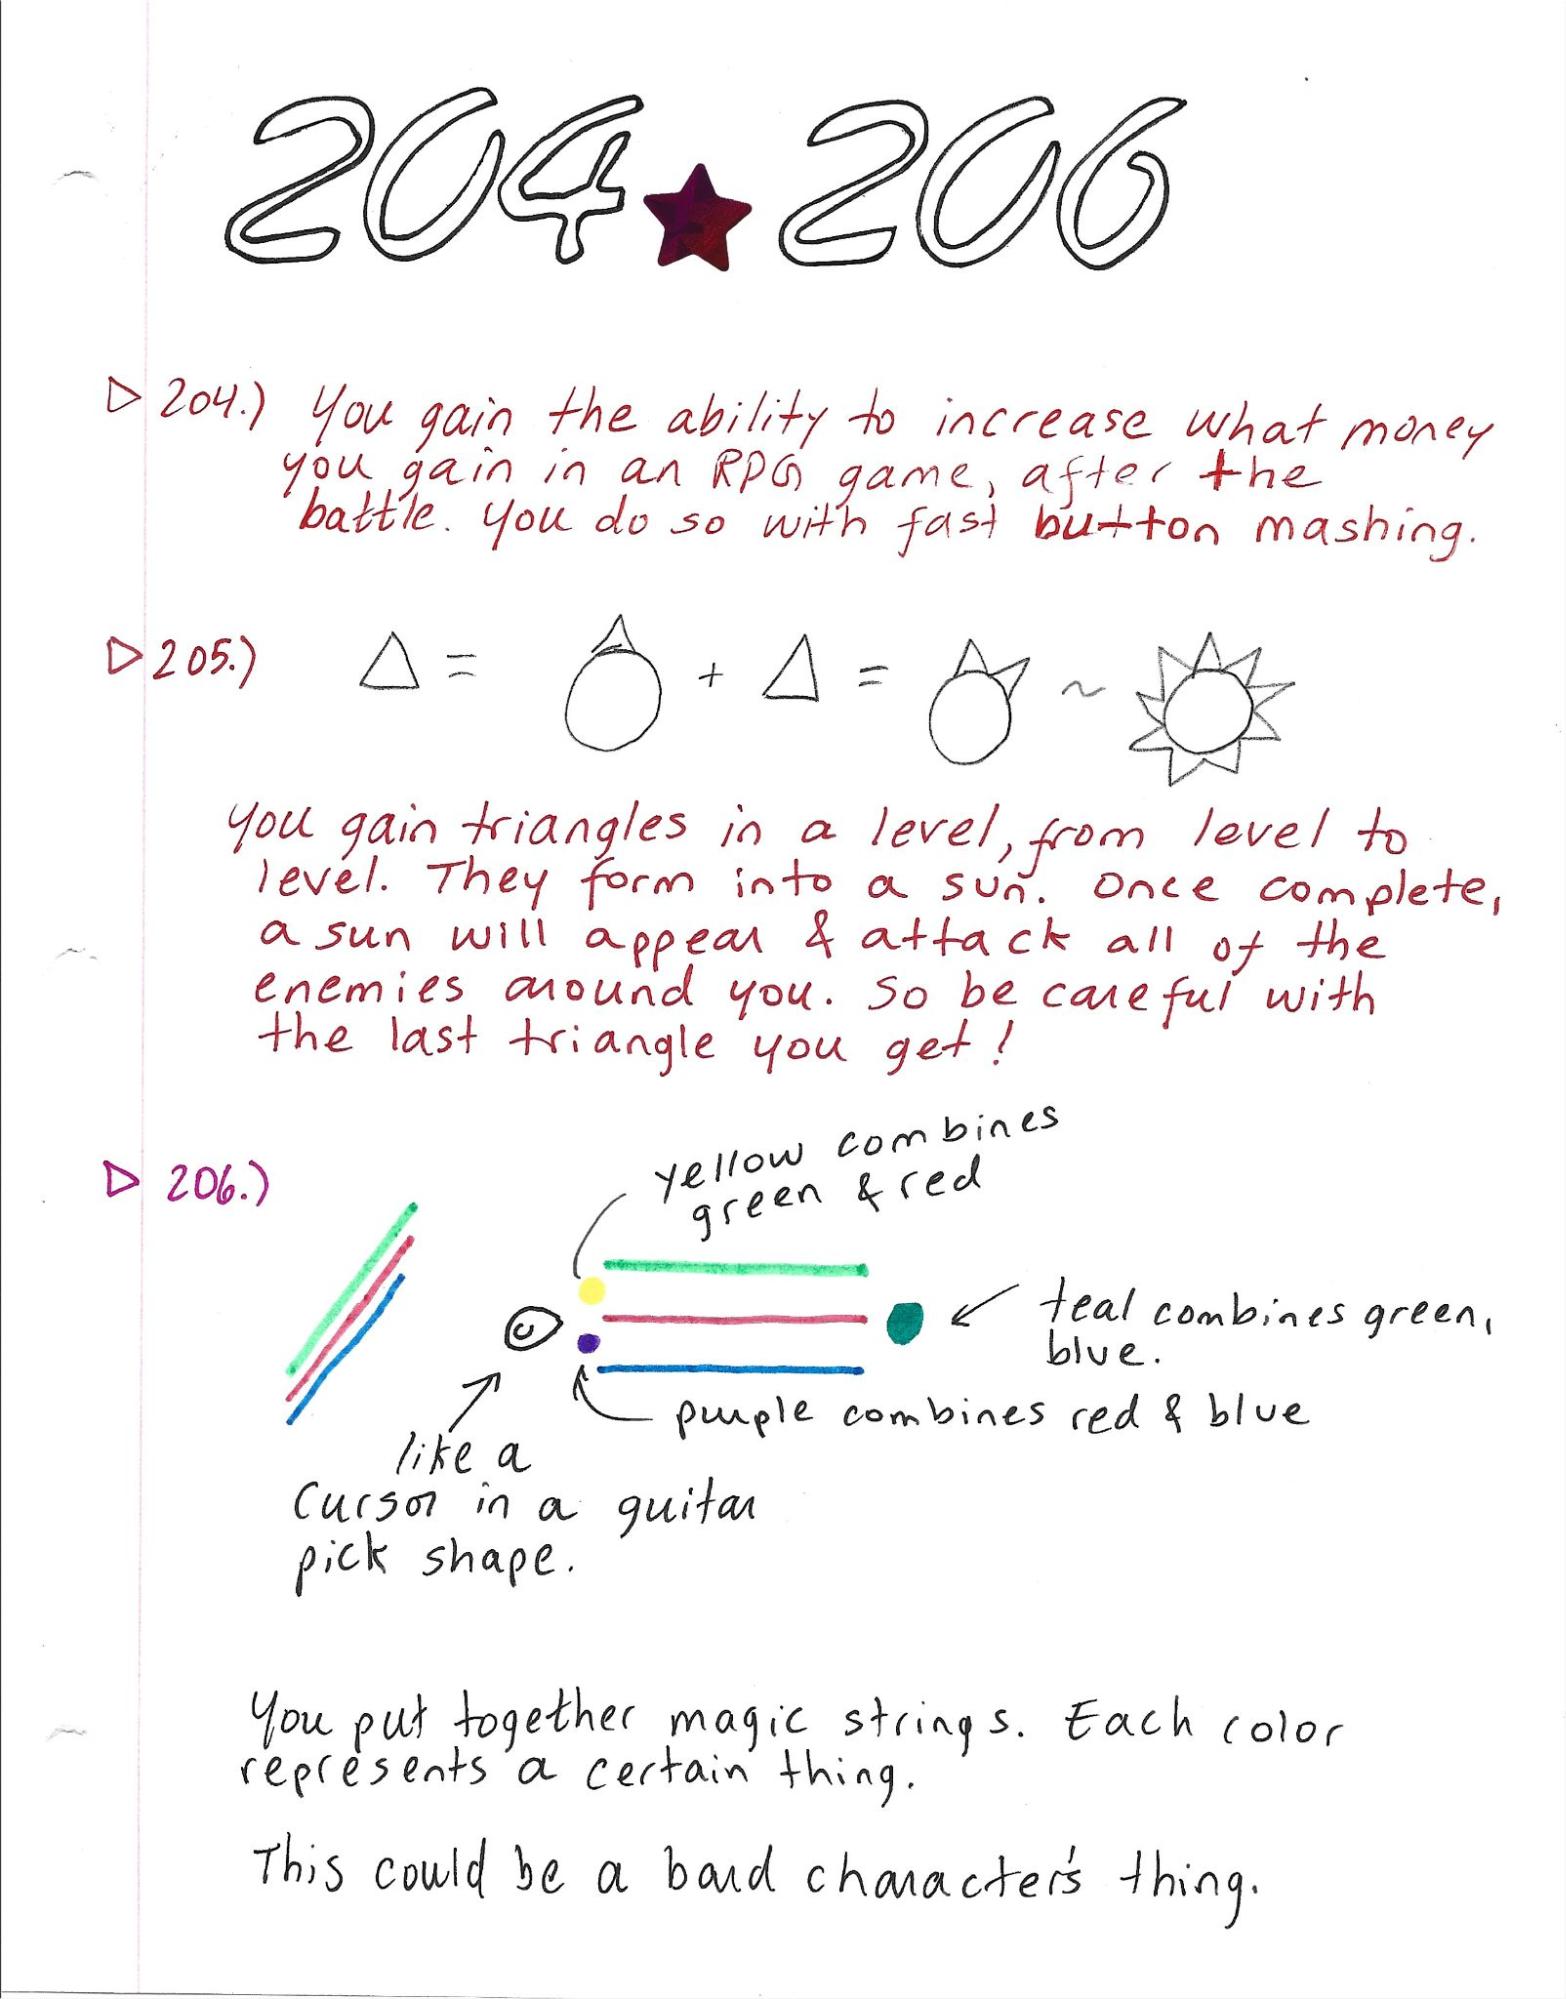 204 ★ 206
▷ 204.) You gain the ability to increase what money
you gain in an RPG game, after the
battle. You do so with fast button mashing.
▷ 205.) △ = + △ = ~
You gain triangles in a level, from level to
level. They form into a sun. Once complete,
a sun will appear & attack all of the
enemies around you. So be careful with
the last triangle you get!
▷ 206.)
yellow combines
green & red
teal combines green,
blue.
purple combines red & blue
like a
cursor in a guitar
pick shape.
You put together magic strings. Each color
represents a certain thing.
This could be a bard character's thing.